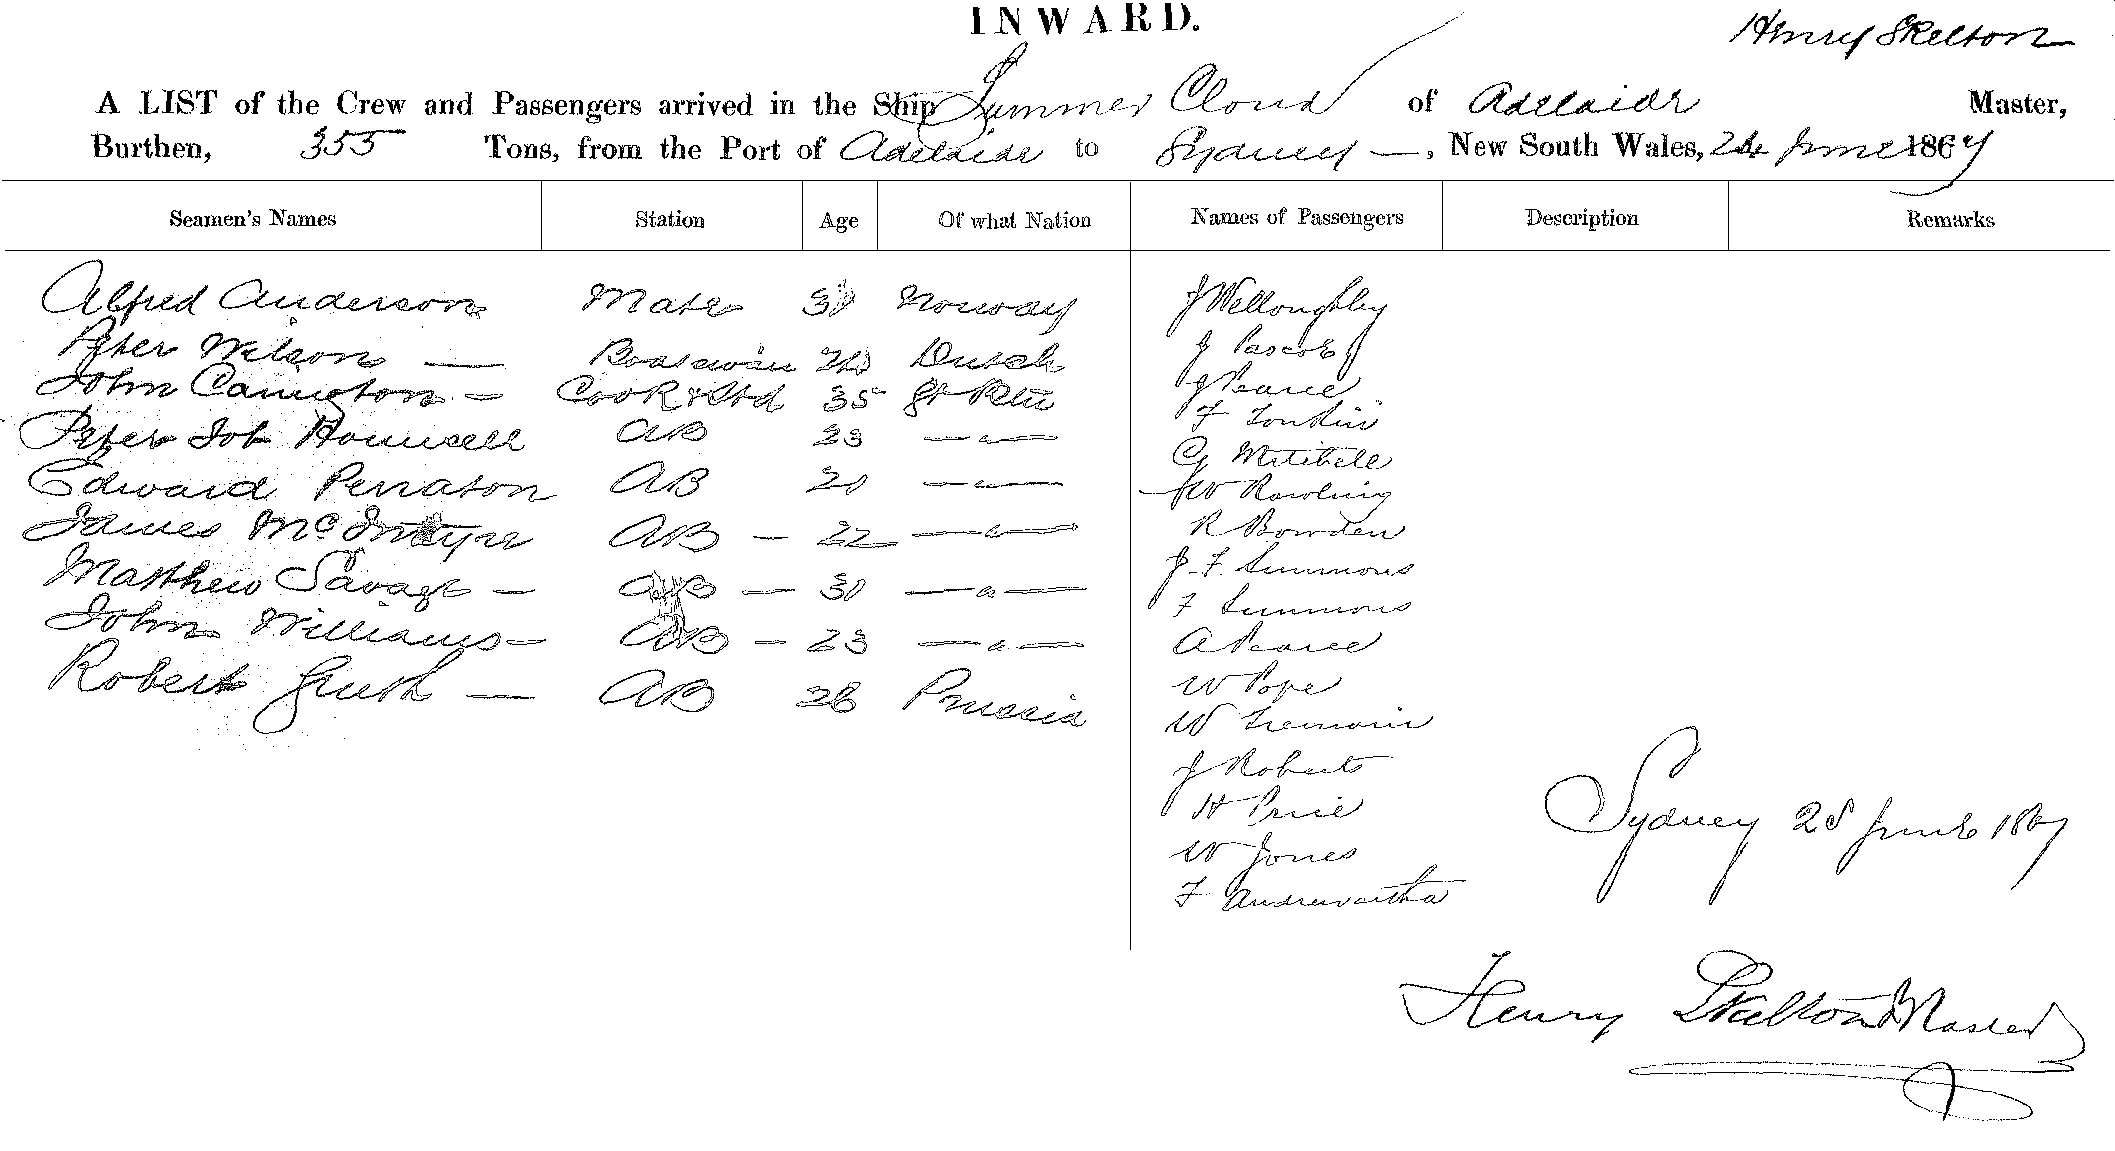 INWARD.
Henry Skelton
A LIST of the Crew and Passengers arrived in the Ship Summer Cloud of Adelaide Master,
Burthen, 355 Tons, from the Port of Adelaide to Sydney —, New South Wales, 24 June 1867
Seamen's Names Station Age Of what Nation Names of Passengers Description Remarks
Alfred Anderson Mate Norway
Peter Wilson — Boatswain Dutch
John — Cook & Std 35 St
Peter Job AB 23 — " —
Edward Perraton AB 20 — " —
James McIntyre AB — 22 — " —
Matthew Savage — AB — 30 — " —
John Williams — AB — 23 — " —
Robert — AB 28 Prussia
J Willoughby
J Pascoe
J Pearce
F Tonkin
G Mitchell
W Rawling
R Bowden
J. F. Simmons
F Simmons
A Pearce
W Pope
W Tremain
J Roberts
H Price
W Jones
F Andrewartha
Sydney 28 June 1867
Henry Skelton Master